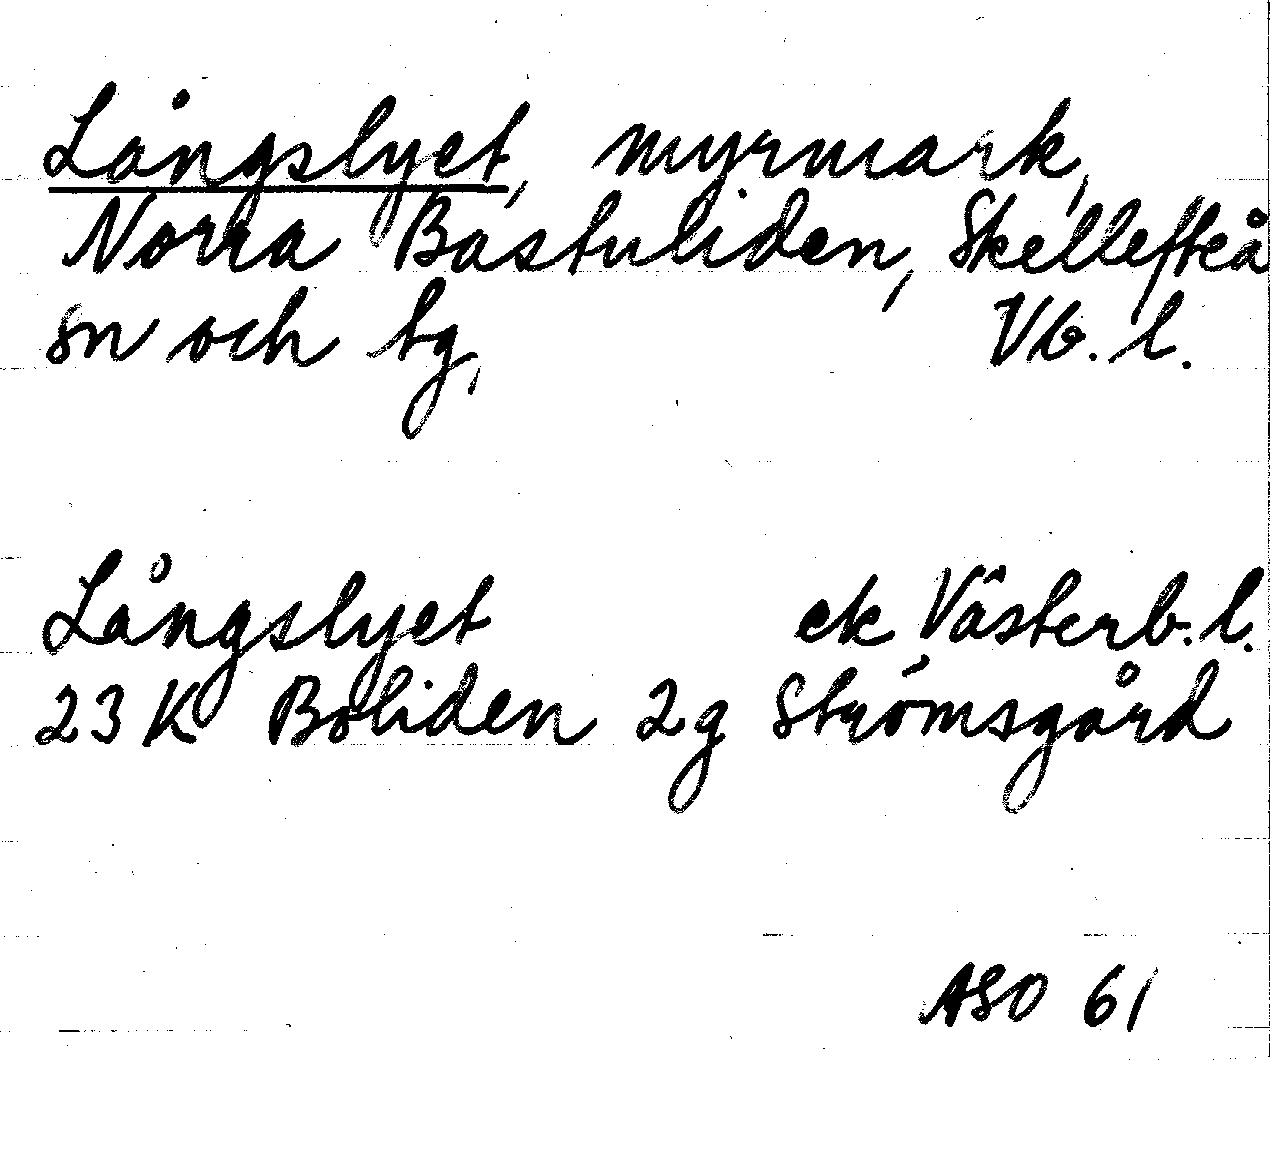 Långslyet, myrmark,
Norra Bastuliden, Skellefteå
sn och tg, Vb. l.
Långslyet ek Västerb. l.
23 K Boliden 2g Strömsgård
ASO 61